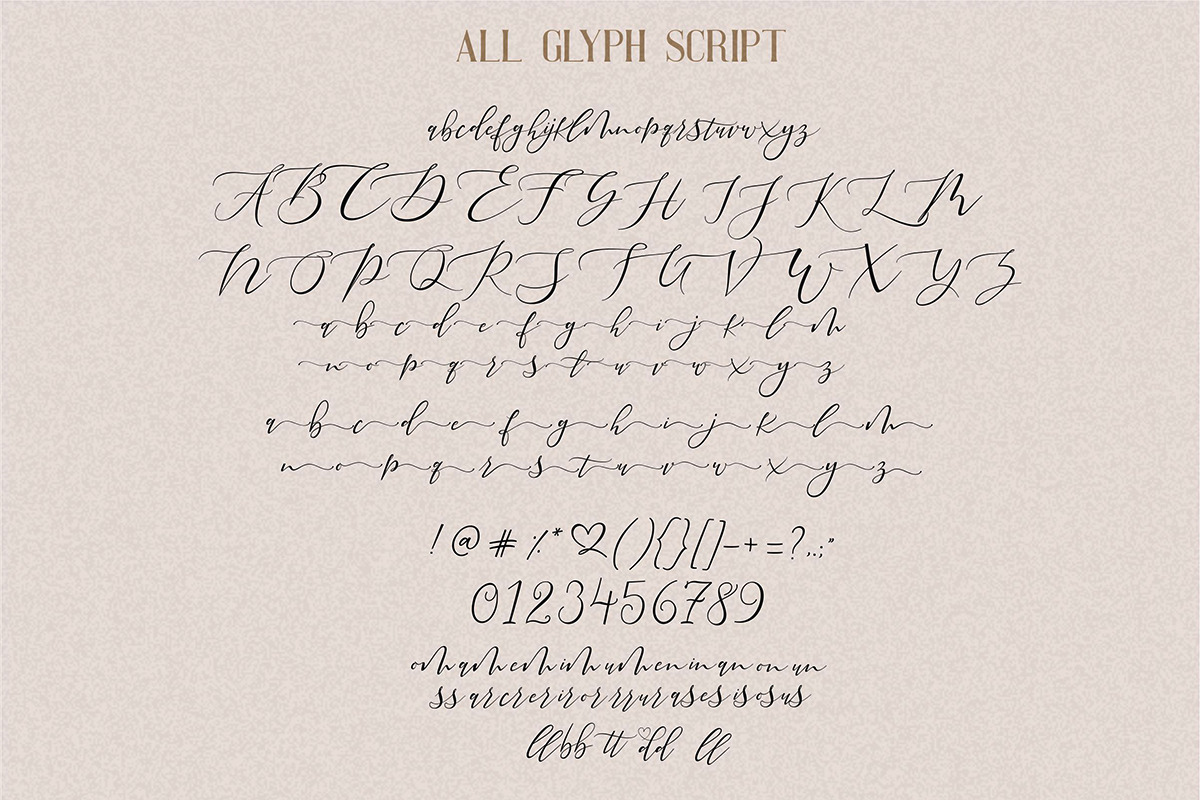 ALL GLYPH SCRIPT
abcdefghijklmnopqrstuvwxyz
A B C D E F G H I J K L M
N O P Q R S T U V W X Y Z
a b c d e f g h i j k l m
n o p q r s t u v w x y z
a b c d e f g h i j k l m
n o p q r s t u v w x y z
! @ # % * ♡ ( ) { } [ ] - + = ? , . : ; "
0123456789
om am em im um en in an on un
ss ar cr er ir or rr ur as es is os us
ll bb tt dd ll